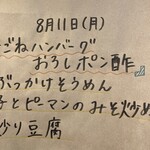 8月11日(月)
ごねハンバーグ
おろしポン酢
ぶっかけそうめん
子とピーマンのみそ炒め
炒り豆腐